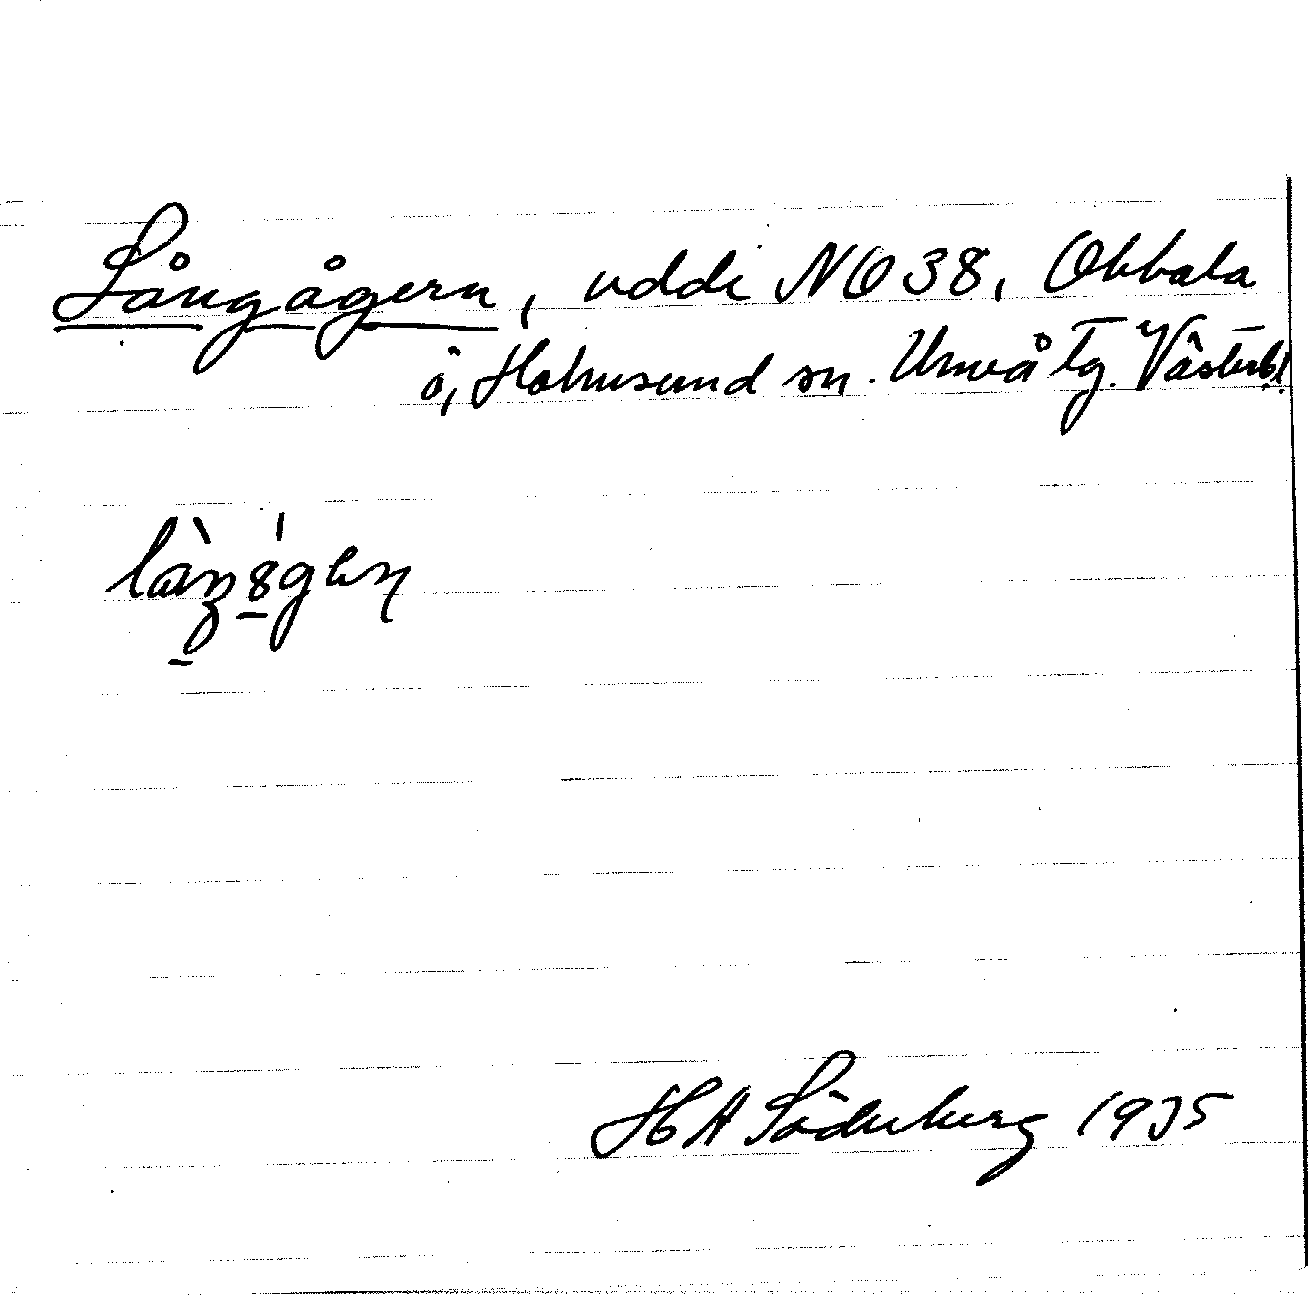 Långågern, udde NO 38, Obbola
ö, Holmsund sn. Umeå tg. Västerb.l
HA Söderberg 1935